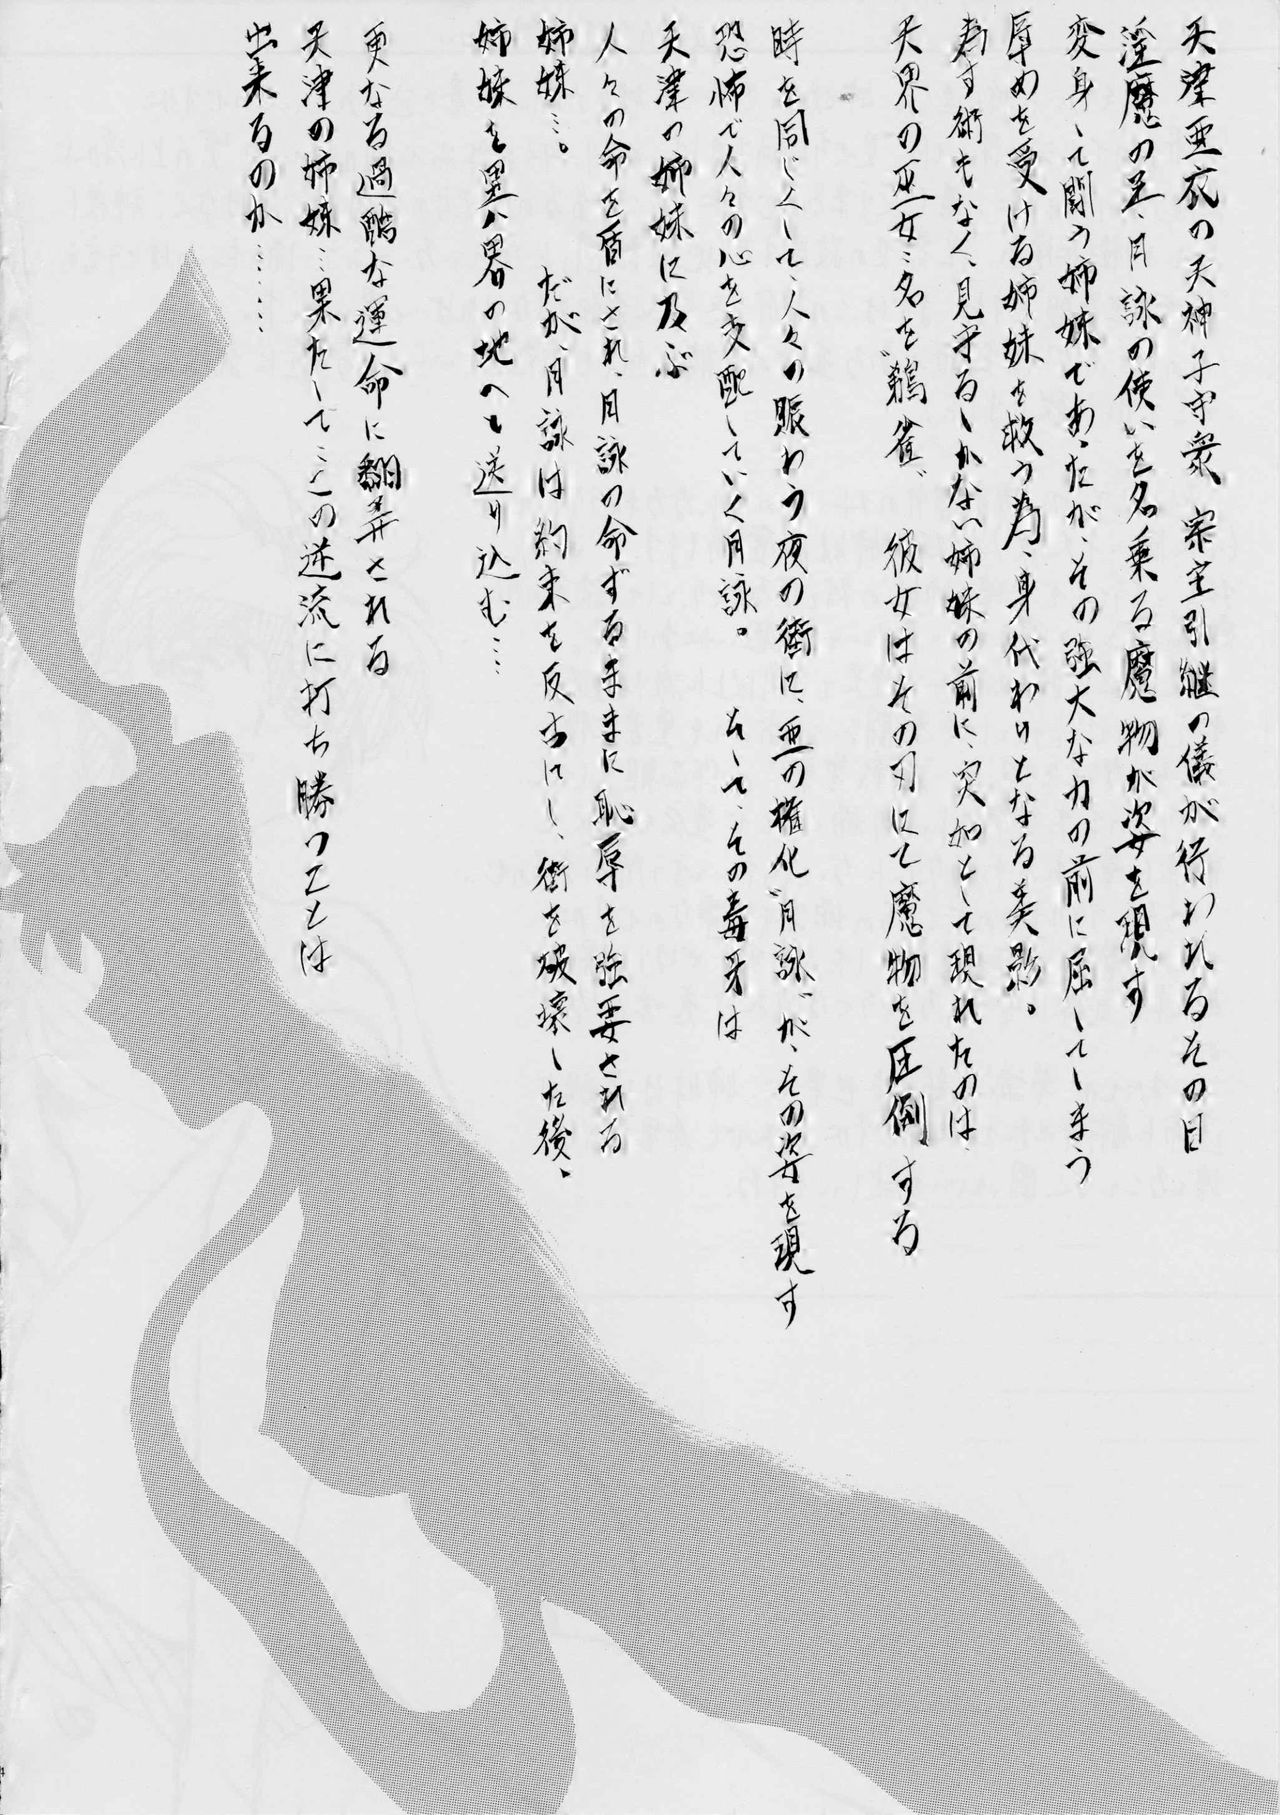 天津亜衣の天神子守衆 宗主引継の儀が行われるその日
淫魔の足、月詠の使いを名乗る魔物が姿を現す
変身して闘う姉妹であったが、その強大な力の前に屈してしまう
辱めを受ける姉妹を救う為、身代わりとなる美影。
為す術もなく、見守るしかない姉妹の前に、突如として現れたのは
天界の巫女…名を〝鵺雀〟 彼女はその刃にて魔物を圧倒する
時を同じくして、人々の賑わう夜の街に、悪の権化〝月詠〟が、その姿を現す
恐怖で人々の心を支配していく月詠。 そして、その毒牙は
天津の姉妹に及ぶ
人々の命を盾にされ、月詠の命ずるままに恥辱を強要される
姉妹…。 だが、月詠は約束を反古にし、街を破壊した後、
姉妹を異八界の地へと送り込む…
更なる過酷な運命に翻弄される
天津の姉妹…果たして…この逆流に打ち勝つことは
出来るのか………